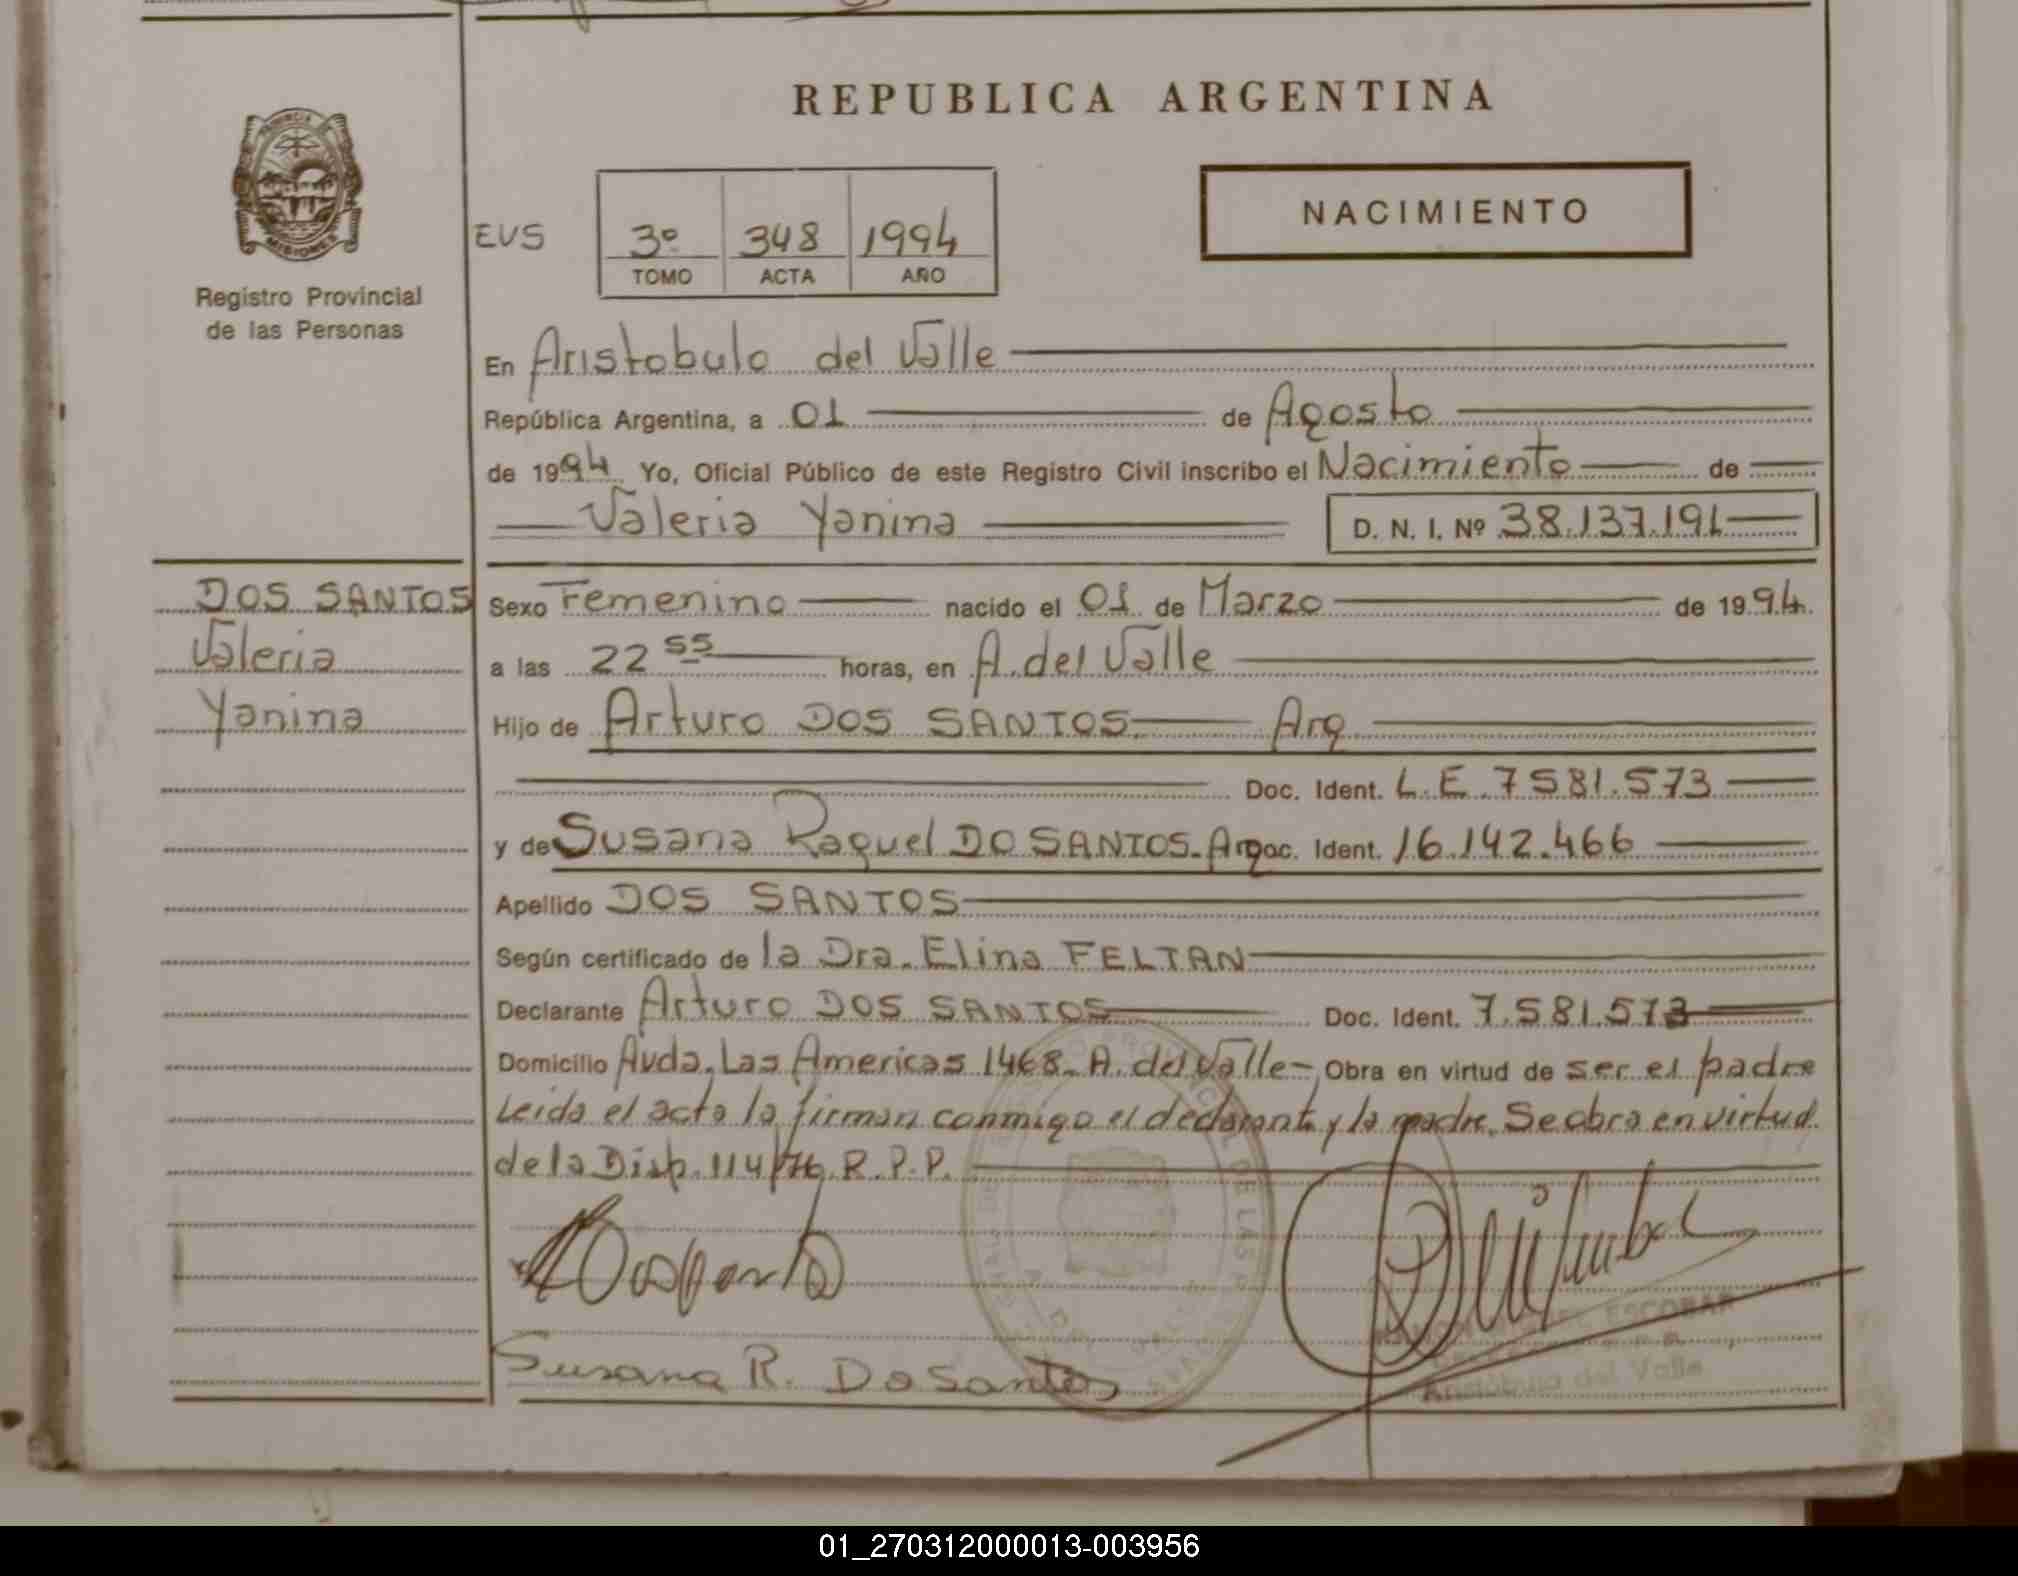 REPUBLICA ARGENTINA
PROVINCIA DE
MISIONES
Registro Provincial
de las Personas
EVS
3º 348 1994
TOMO ACTA AÑO
NACIMIENTO
En Aristobulo del Valle
República Argentina, a 01 de Agosto
de 1994 Yo, Oficial Público de este Registro Civil inscribo el Nacimiento de
Valeria Yanina D. N. I. Nº 38.137.191
DOS SANTOS
Valeria
Yanina
Sexo Femenino nacido el 01 de Marzo de 1994.
a las 22 55 horas, en A. del Valle
Hijo de Arturo DOS SANTOS Arg.
Doc. Ident. L.E. 7581.573
y de Susana Raquel DO SANTOS. Arg Doc. Ident. 16.142.466
Apellido DOS SANTOS
Según certificado de la Dra. Elina FELTAN
Declarante Arturo DOS SANTOS Doc. Ident. 7.581.573
Domicilio Avda. Las Americas 1468. A. del Valle- Obra en virtud de ser el padre
Leida el acta la firman conmigo el declarante y la madre. Se obra en virtud
de la Disp. 114/76 R.P.P.
Susana R. Do Santos
ESCOBAR
Aristóbulo del Valle
01_270312000013-003956